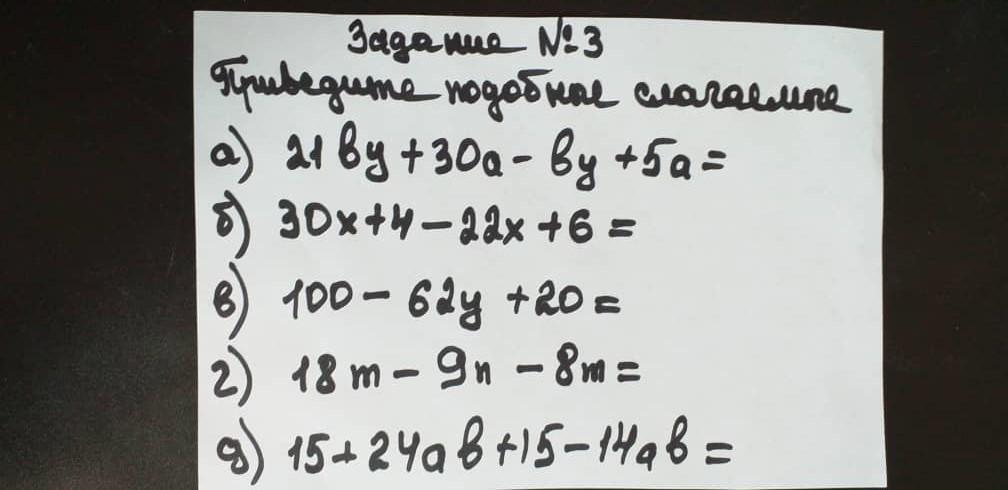 Задание №3
Приведите подобные слагаемые
а) 21ву+30а-ву+5а=
б) 30х+4-22х+6=
в) 100-62у+20=
г) 18m-9n-8m=
д) 15+24ав+15-14ав=